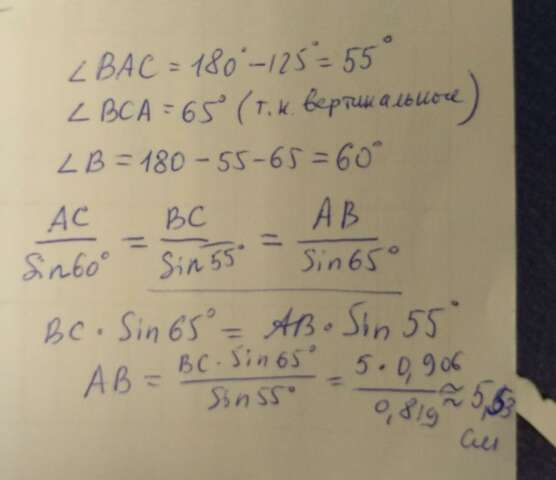 ∠BAC = 180° - 125° = 55°
∠BCA = 65° (т.к. вертикальные)
∠B = 180 - 55 - 65 = 60°
AC/Sin60° = BC/Sin55° = AB/Sin65°
BC · Sin65° = AB · Sin55°
AB = BC · Sin65°/Sin55° = 5 · 0,906/0,819 ≈ 5,53
см